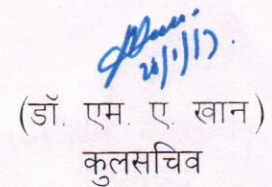 26/1/17.
(डॉ. एम. ए. खान)
कुलसचिव